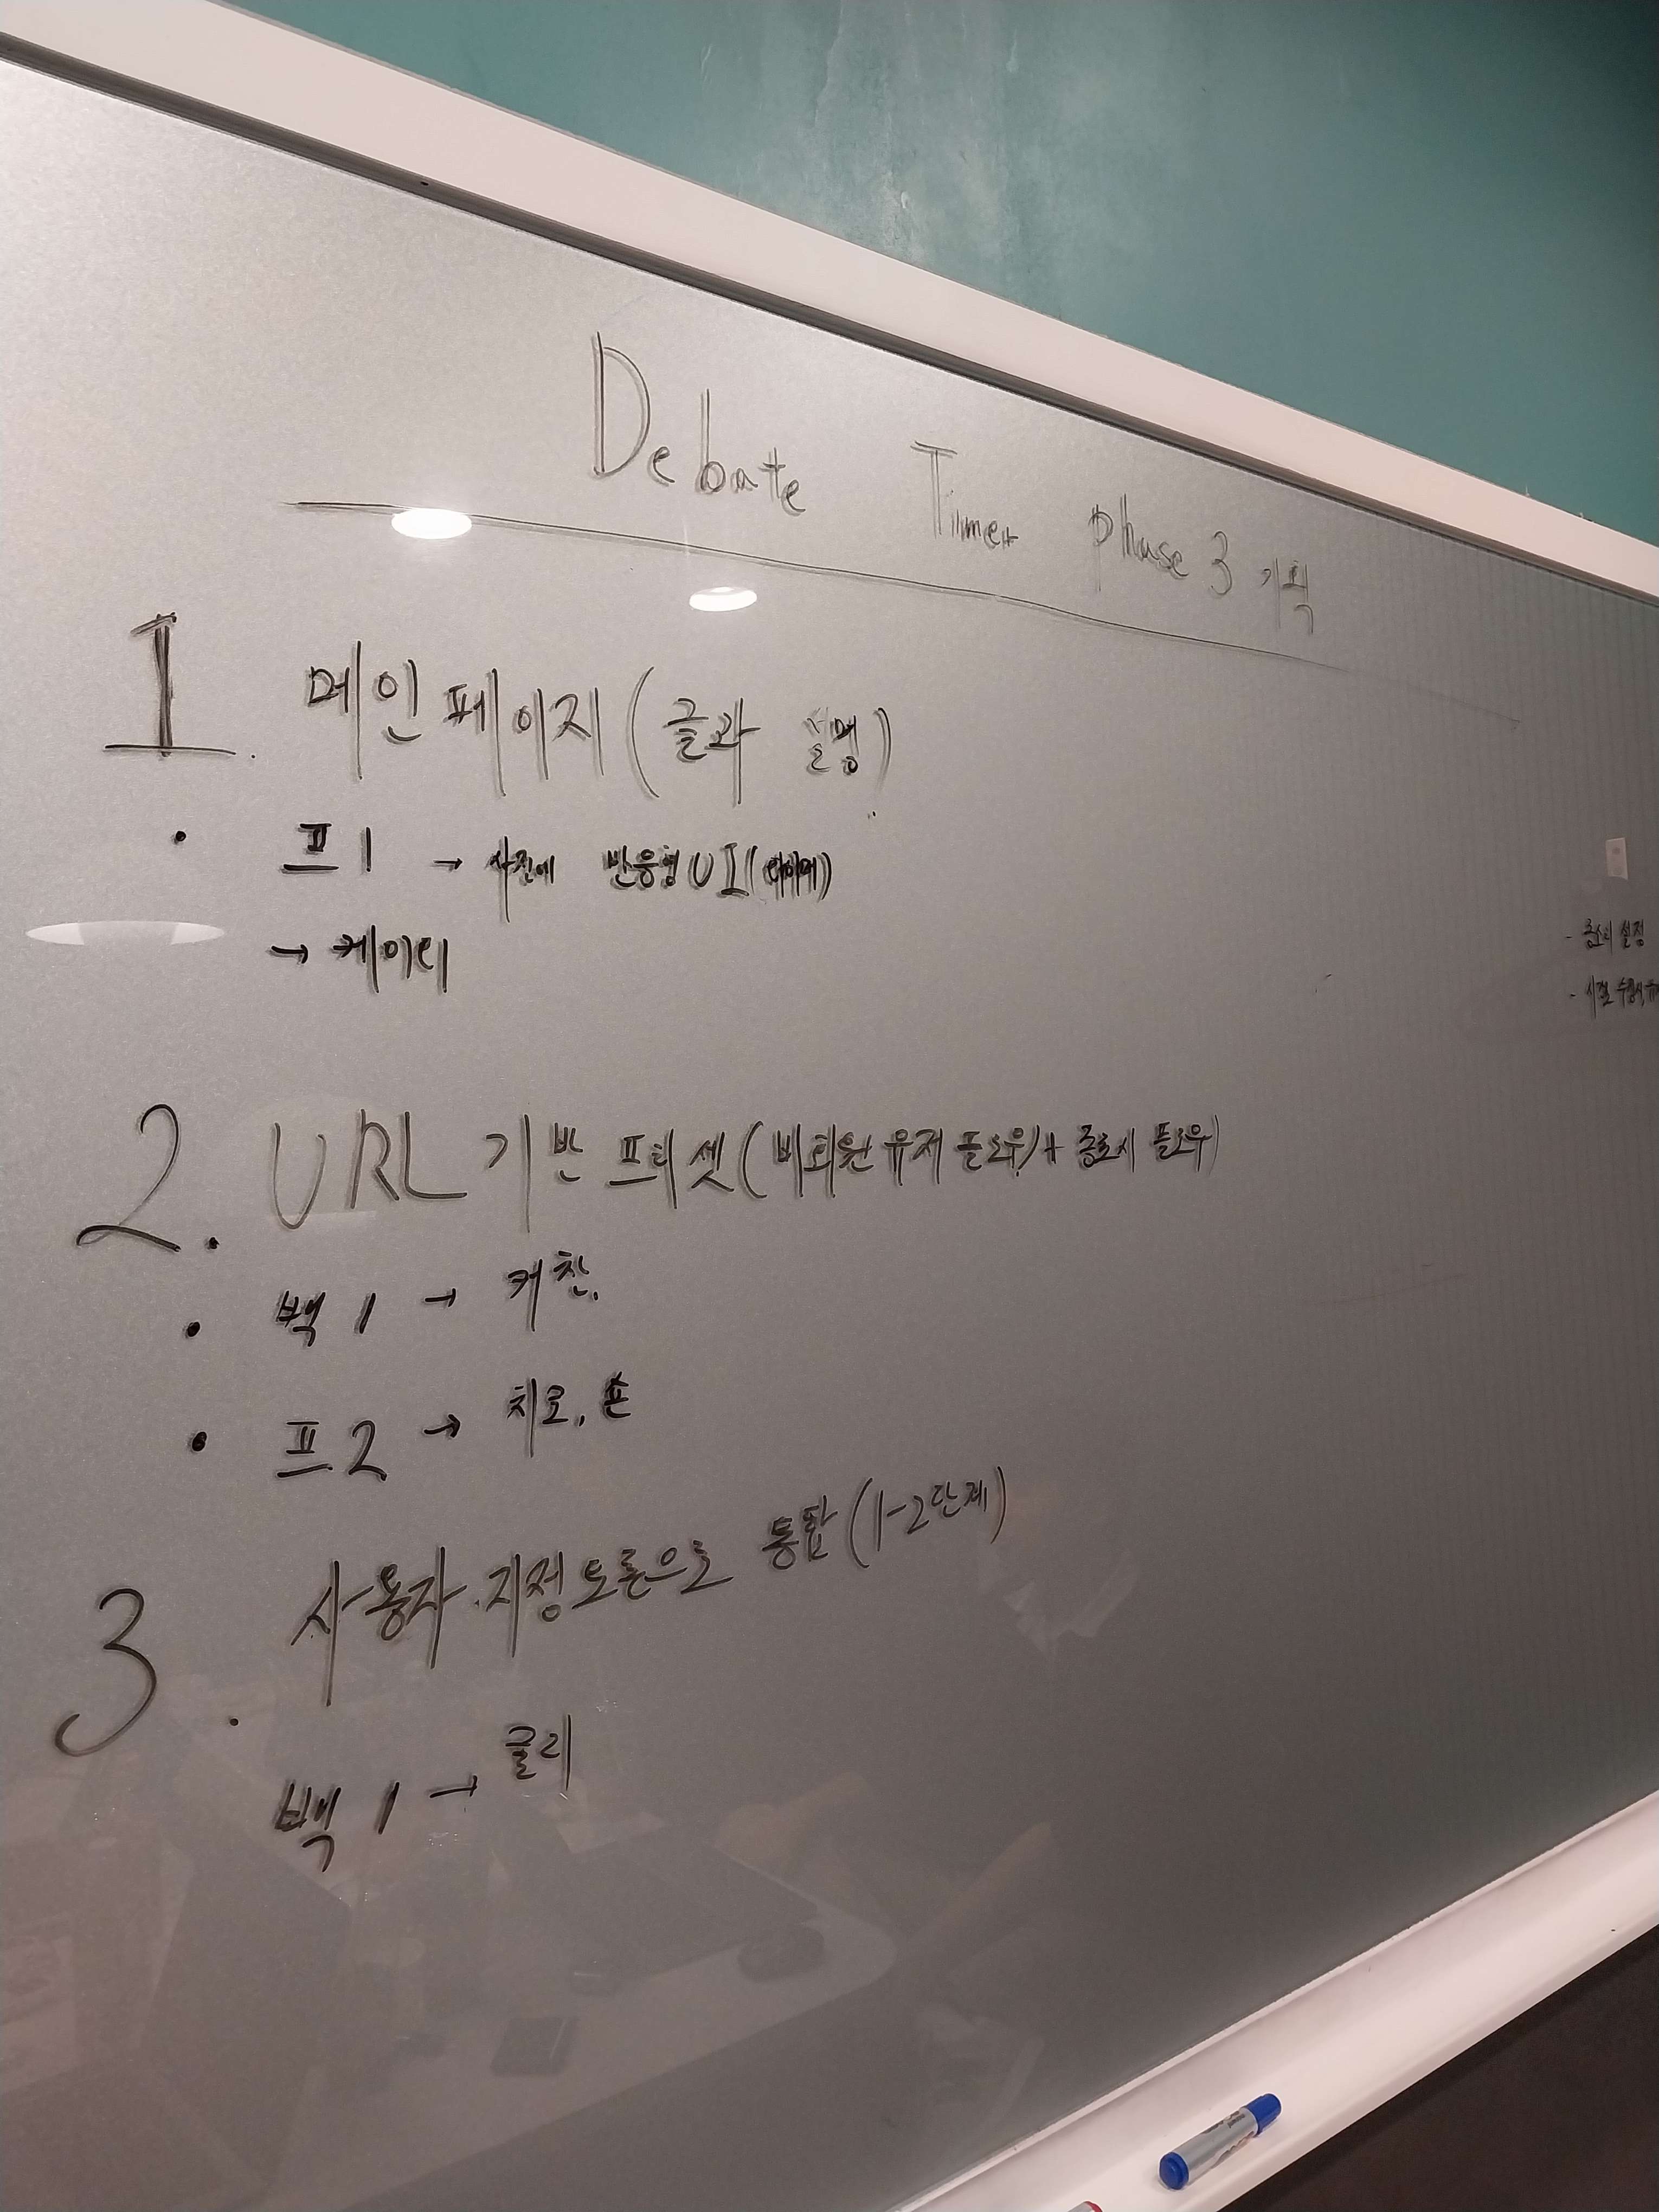 Debate Timer phase 3 기획
1. 메인 페이지 (글과 설명)
• 프 1 → 사진에 반응형 UI
→ 케이티
2. URL 기반 프리셋 (비회원 유저 플로우) + 종료시 플로우)
• 백 1 → 커찬,
• 프 2 → 치코, 숀
3. 사용자 지정 토론으로 통합 (1-2단계)
백 1 → 콜리
- 종소리 설정